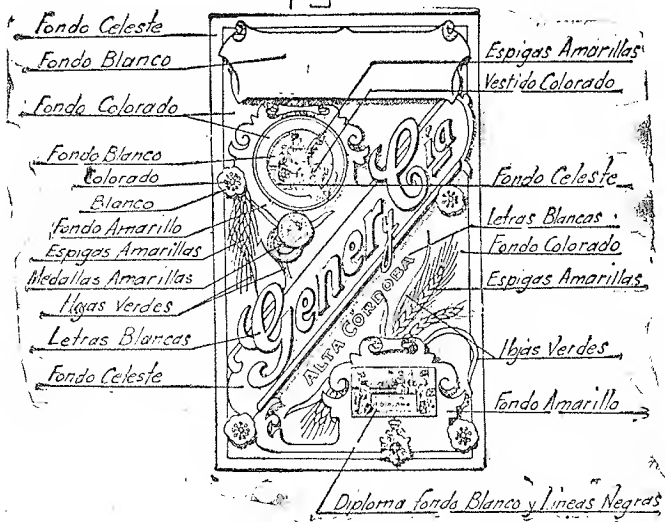 Fondo Celeste
Fondo Blanco
Fondo Colorado
Fondo Blanco
Colorado
Blanco
Fondo Amarillo
Espigas Amarillas
Medallas Amarillas
Hojas Verdes
Letras Blancas
Fondo Celeste
Espigas Amarillas
Vestido Colorado
Fondo Celeste
Letras Blancas
Fondo Colorado
Espigas Amarillas
Hojas Verdes
Fondo Amarillo
Diploma fondo Blanco y Lineas Negras
Gener y Cia
ALTA CÓRDOBA